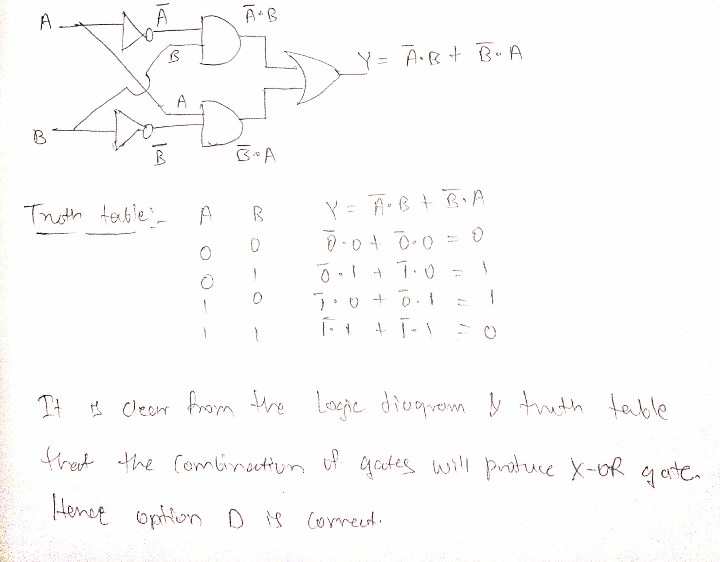 A Ā Ā·B
B Y = Ā·B + B̄·A
A
B B̄ B̄·A
Truth table:- A B Y = Ā·B + B̄·A
0 0 0̄·0 + 0̄·0 = 0
0 1 0̄·1 + 1̄·0 = 1
1 0 1̄·0 + 0̄·1 = 1
1 1 1̄·1 + 1̄·1 = 0
It is clear from the Logic diagram & truth table
that the combination of gates will produce X-OR gate.
Hence option D is correct.